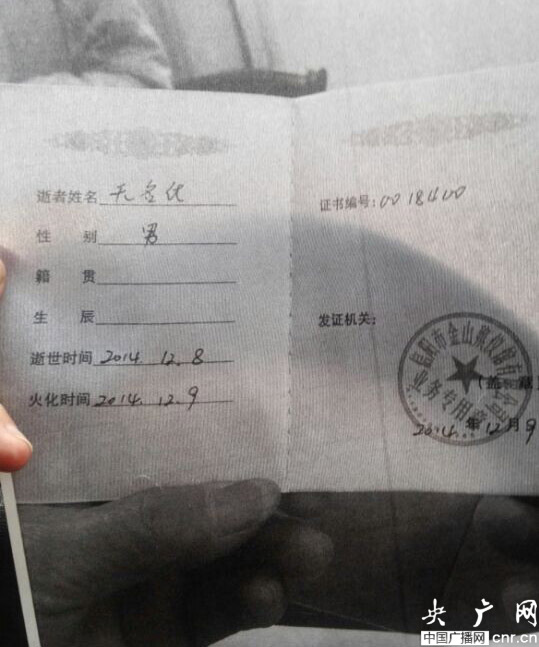 逝者姓名 无名氏
性别 男
籍贯
生辰
逝世时间 2014.12.8
火化时间 2014.12.9
证书编号:0018400
发证机关:
信阳市金山殡仪
业务专用章
(盖章)
2014.年12月9
央广网
中国广播网 cnr.cn